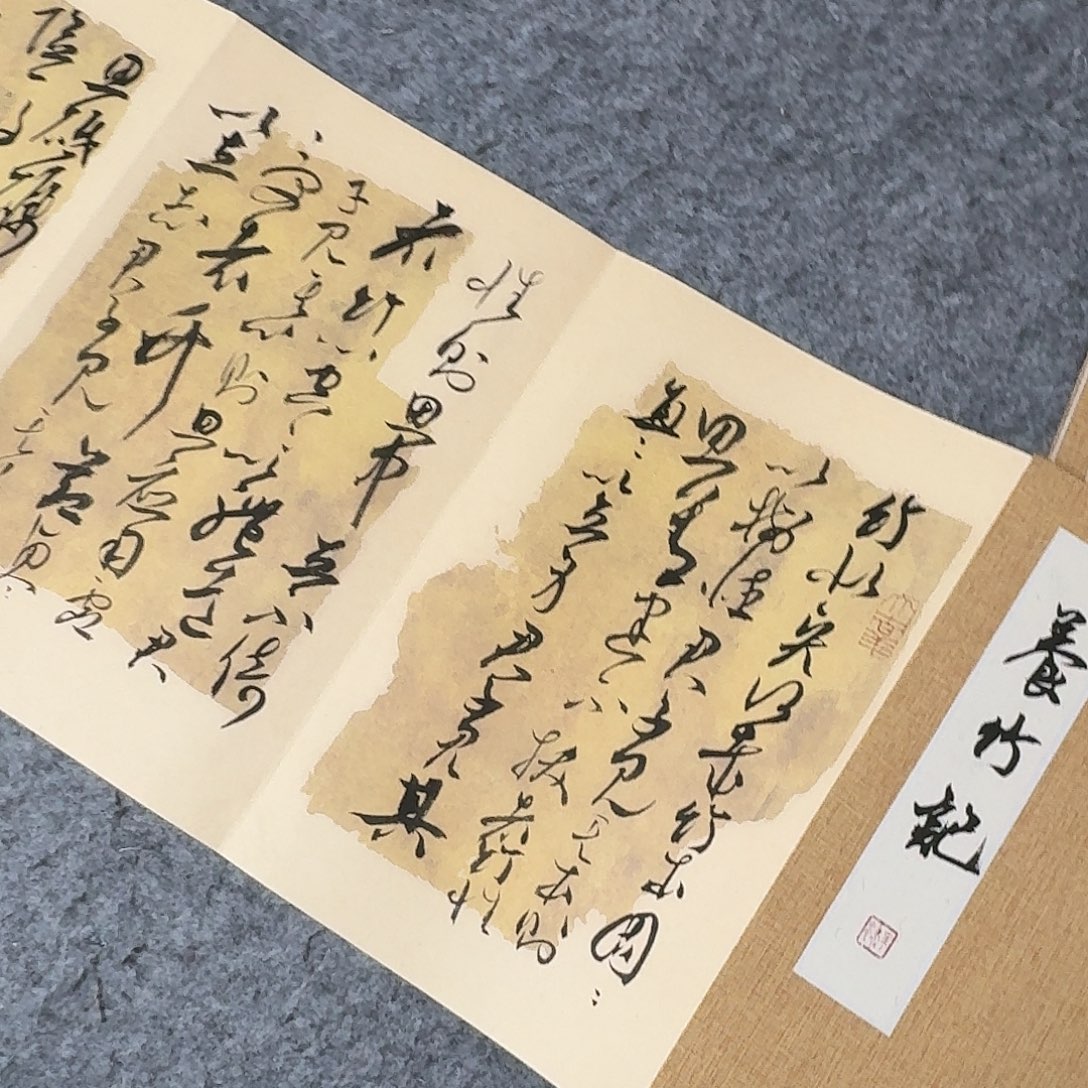 養竹記
竹似賢何哉竹本固〻
以樹德君子見其本則
思善建不拔者竹性
直〻以立身君子見其
性則思中立不倚
者竹心空〻以體道君
子見其心則思應用虛
受者竹節貞〻
以立志君子見其
思砥礪
險